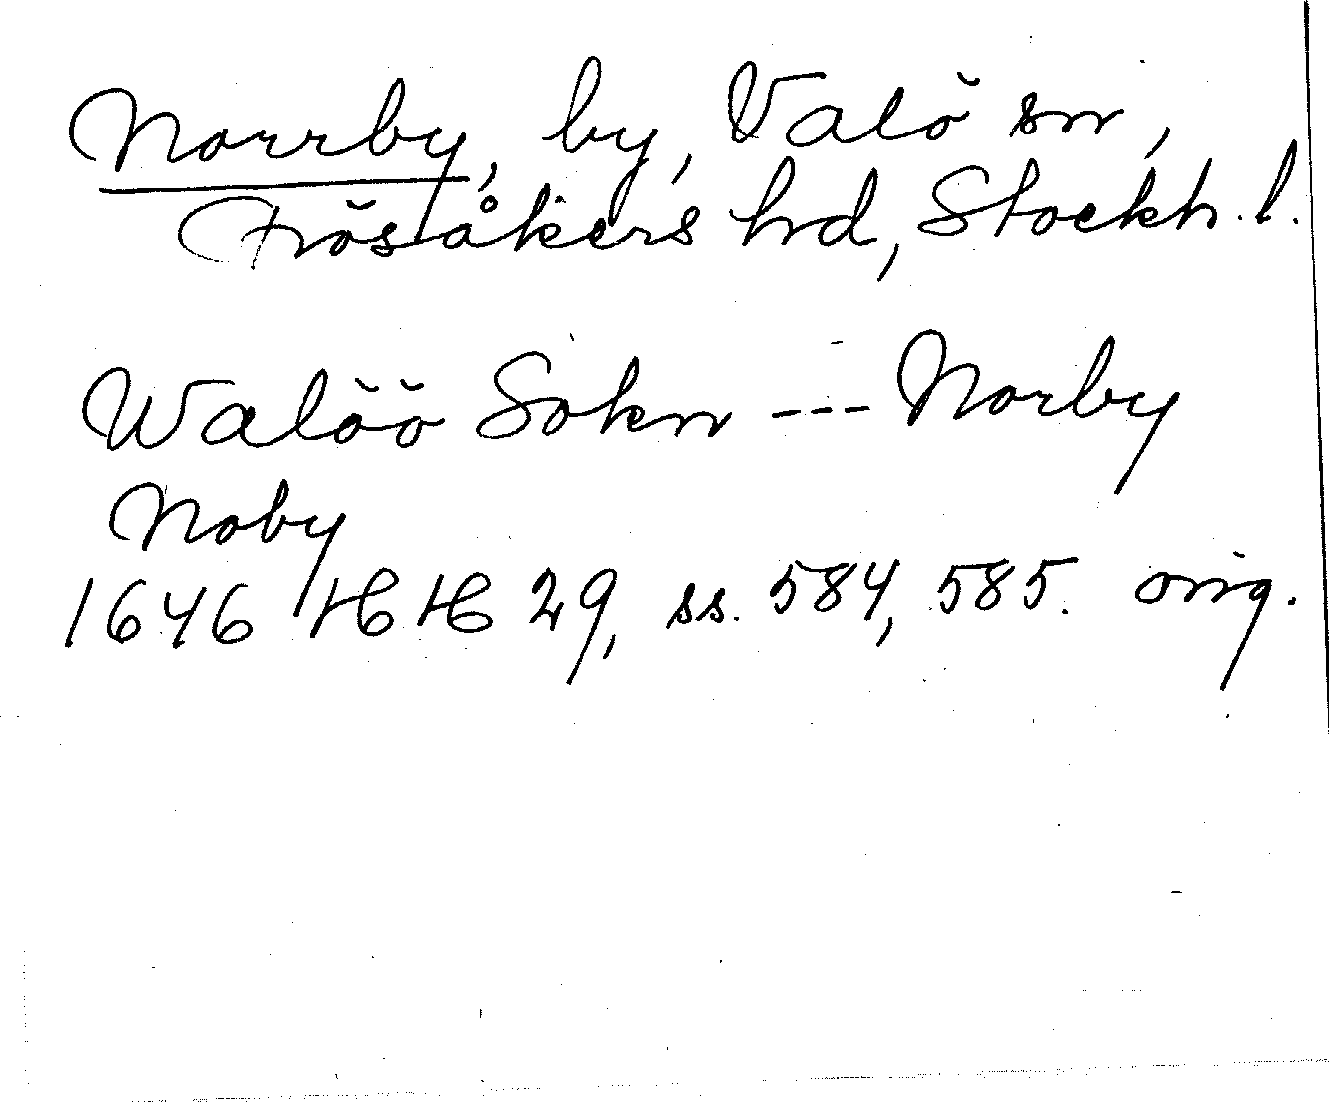 Norrby, by, Valö sn,
Frösåkers hd, Stockh. l.
Walöö Sokn --- Norby
Noby
1646 HH 29, ss. 584, 585. orig.